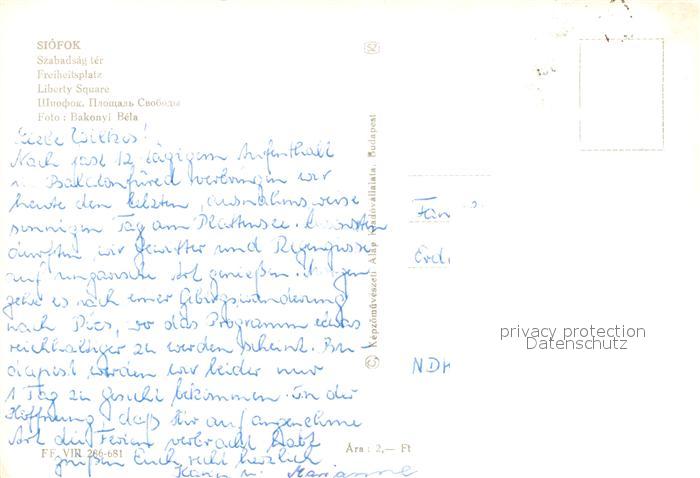 SIÓFOK
Szabadság tér
Freiheitsplatz
Liberty Square
Шиофок, Площадь Свободы
Foto : Bakonyi Béla
Nach fast 12 tägigem Aufenthalt
in Balatonfüred verbringen wir
heute den letzten, ausnahmsweise
sonnigen Tag am Plattensee. Ansonsten
durften wir Gewitter und Regengüsse
auf ungarische Art genießen. Morgen
gehe es nach einer Gebirgswanderung
nach Pécs, wo das Programm etwas
reichhaltiger zu werden scheint. Bu-
dapest werden wir leider nur
1 Tag zu Gesicht bekommen. In der
Hoffnung, daß Ihr auf angenehme
Art die Ferien verbracht habt
grüßen Euch recht herzlich
Karin u. Marianne
FF. VIII 286-681
Ára : 2,— Ft
Képzőművészeti Alap Kiadóvállalata, Budapest
SZ
Fam
Erd
NDH
privacy protection
Datenschutz